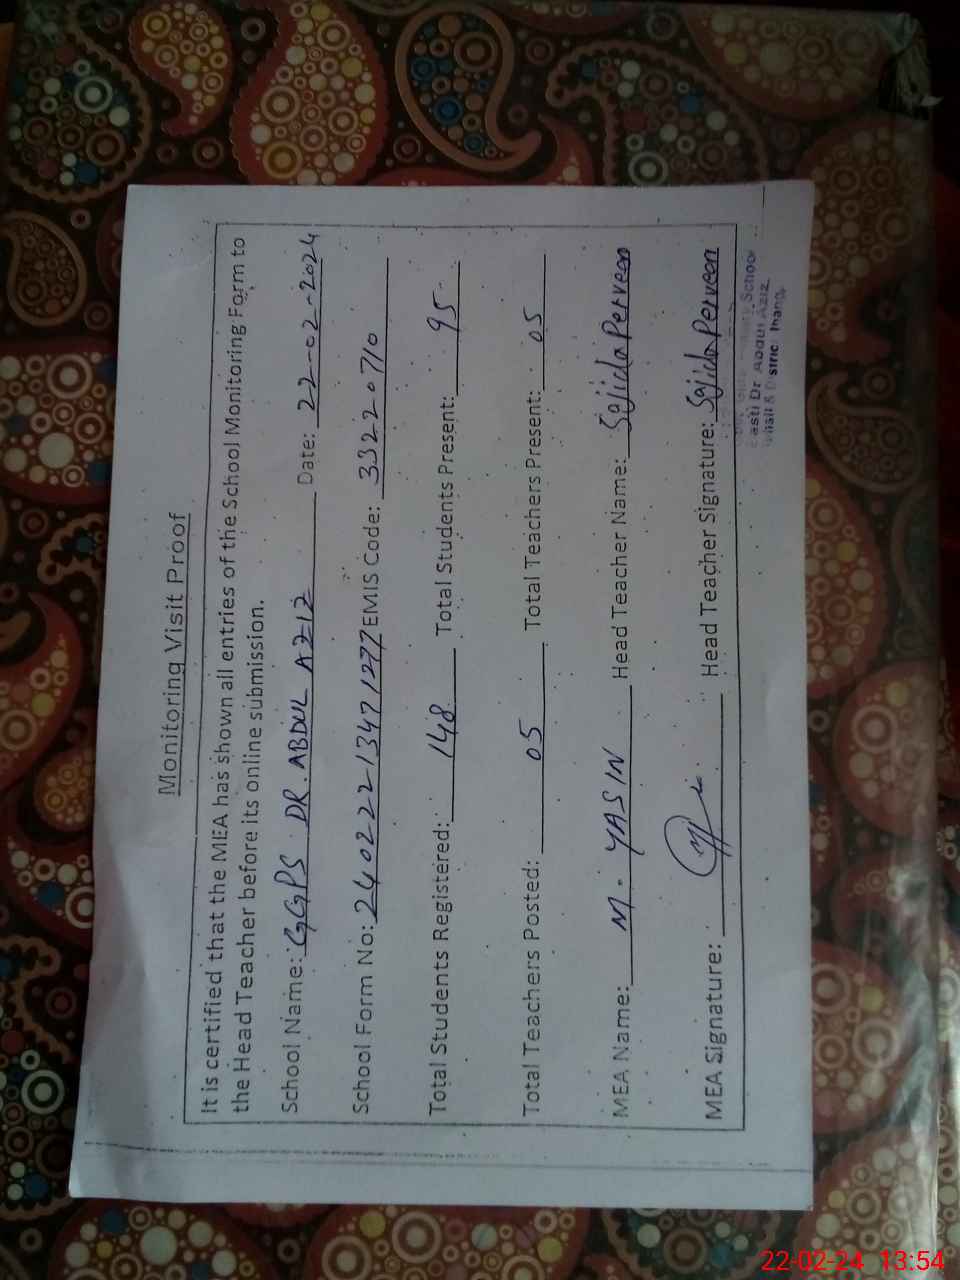 Monitoring Visit Proof
It is certified that the MEA has shown all entries of the School Monitoring Form to
the Head Teacher before its online submission.
School Name: GGPS DR. ABDUL AZIZ Date: 22-02-2024
School Form No: 2402221347127 EMIS Code: 33220710
Total Students Registered: 148 Total Students Present: 95
Total Teachers Posted: 05 Total Teachers Present: 05
MEA Name: M. YASIN Head Teacher Name: Sajida Perveen
MEA Signature: Head Teacher Signature: Sajida Perveen
School
Basti Dr Abdul Aziz
& District
22-02-24 13:54